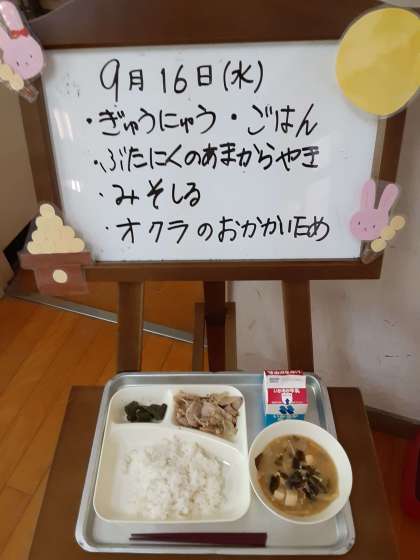 9月16日(水)
・ぎゅうにゅう・ごはん
・ぶたにくのあまからやき
・みそしる
・オクラのおかかいため